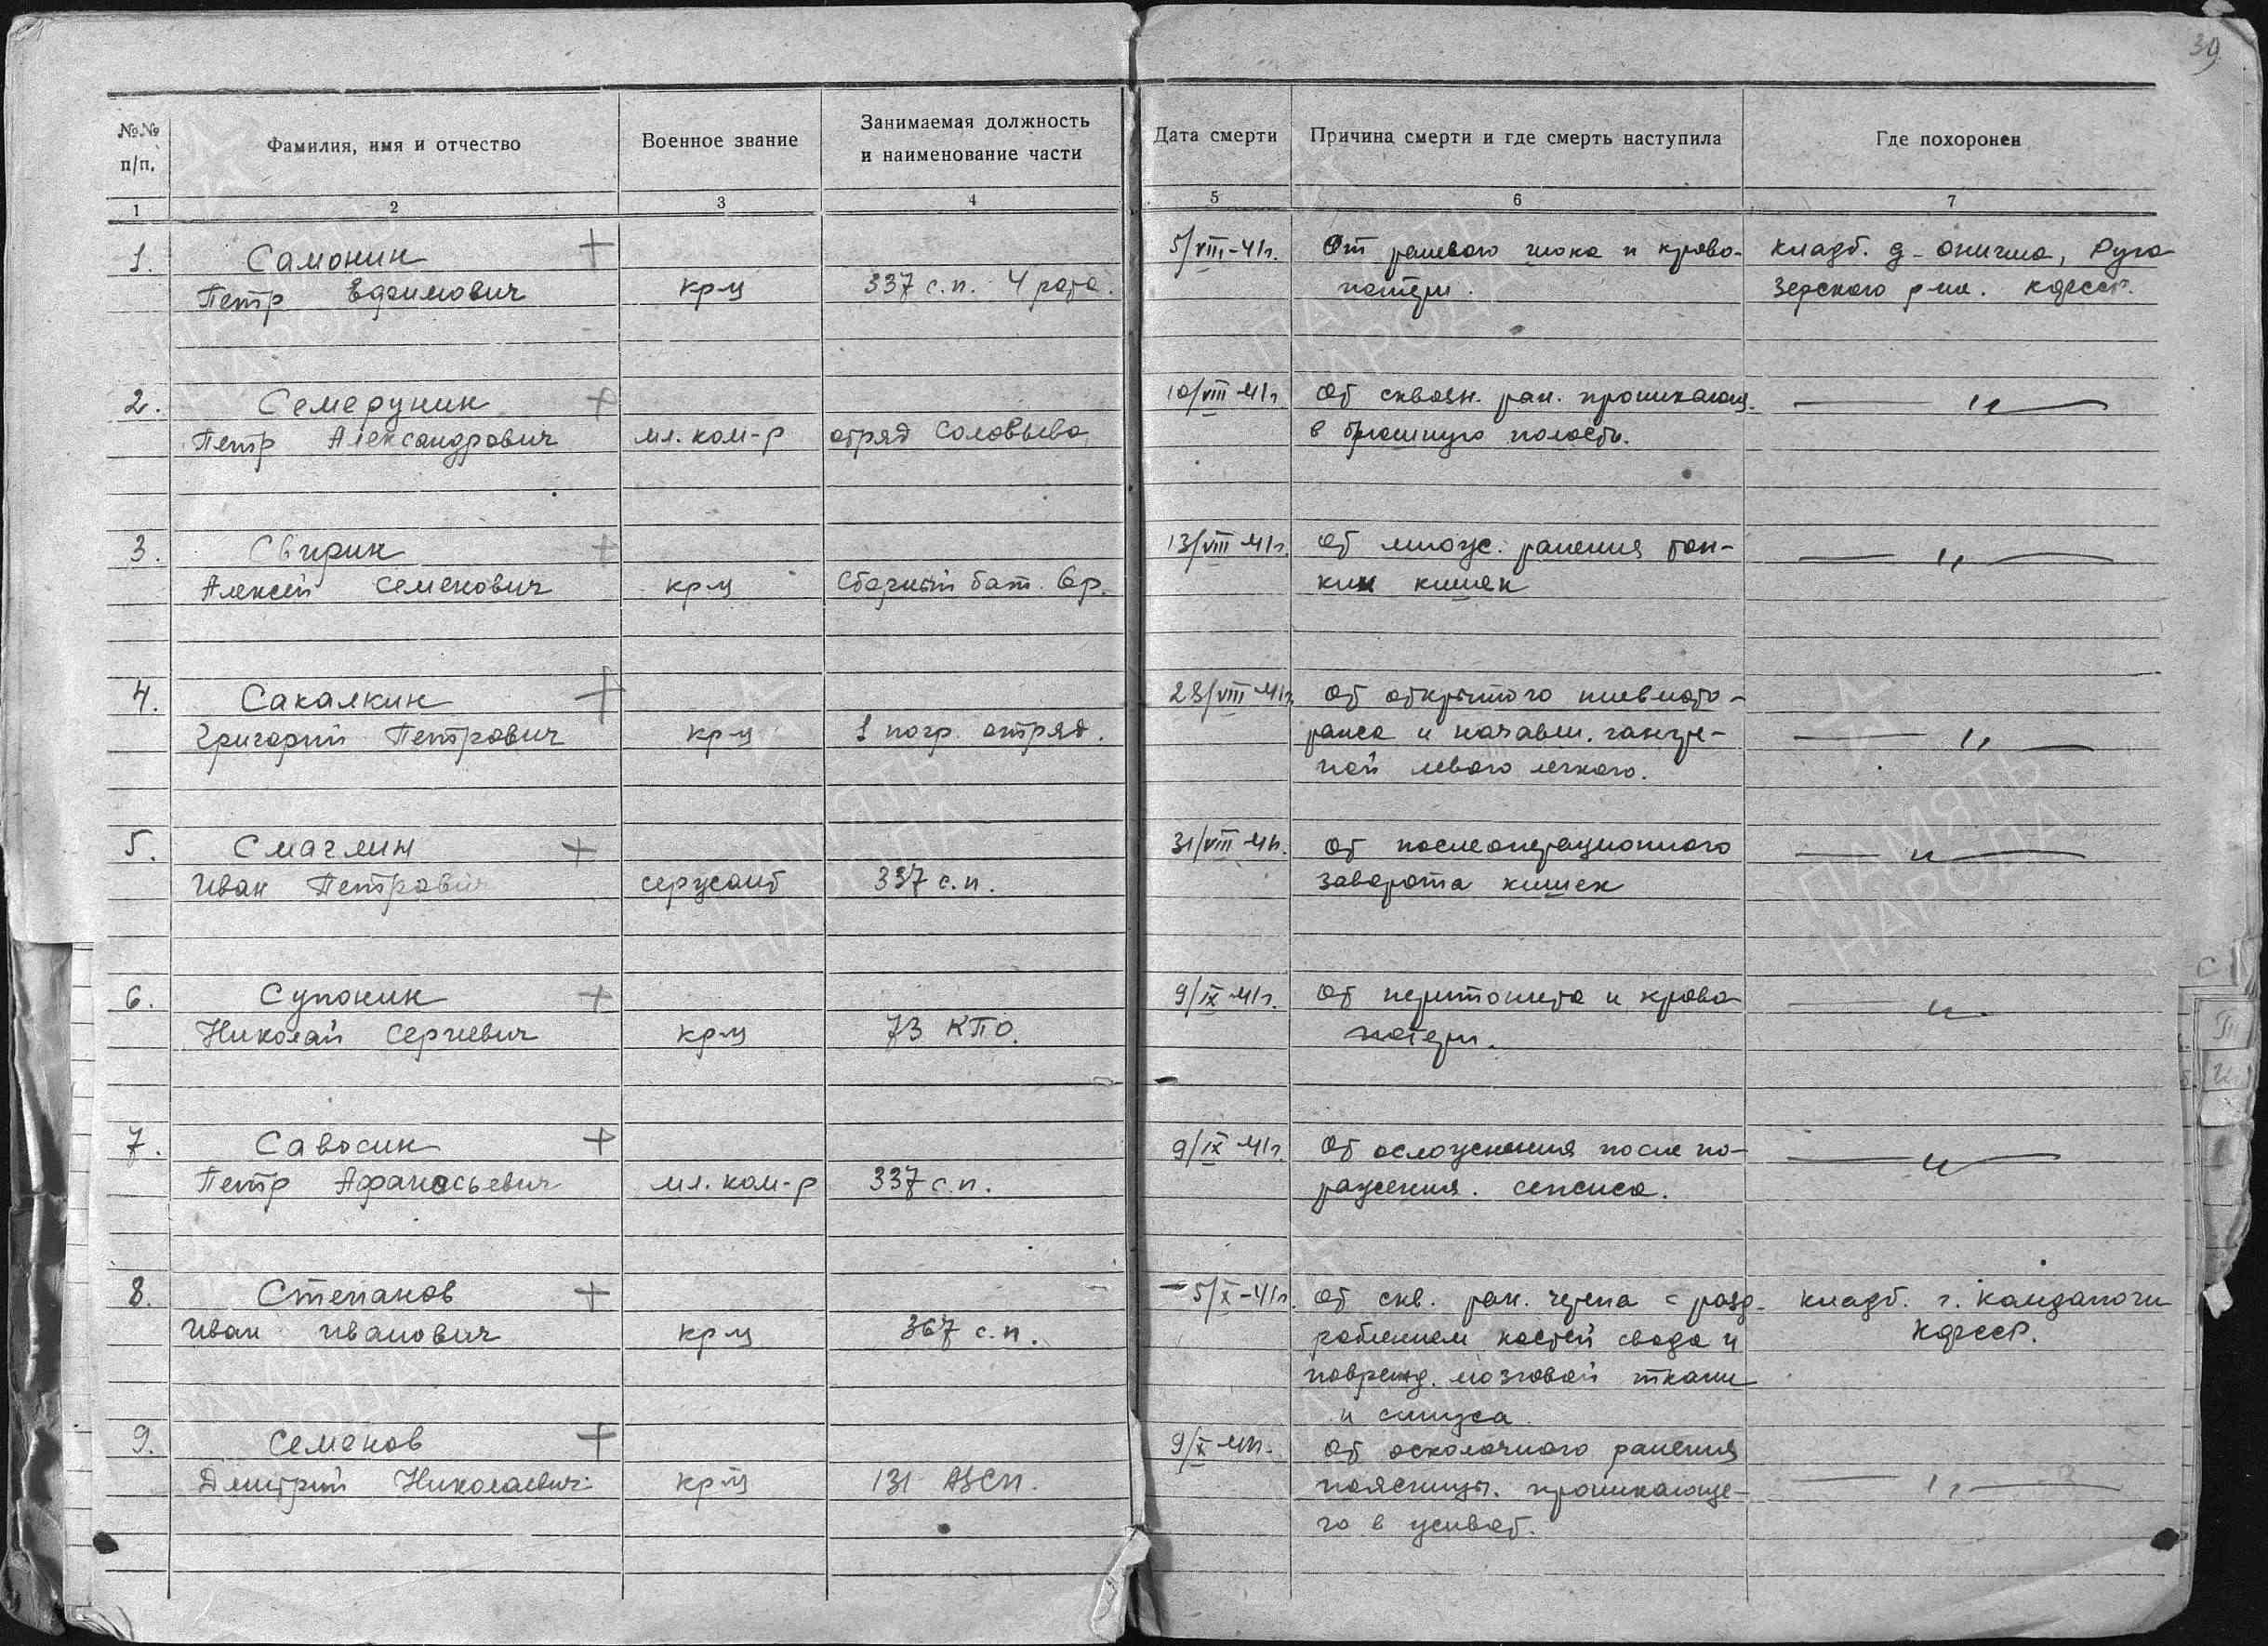 39
№№ п/п.
Фамилия, имя и отчество
Военное звание
Занимаемая должность и наименование части
Дата смерти
Причина смерти и где смерть наступила
Где похоронен
1 2 3 4 5 6 7
1. Самонин + 5/VIII-41г. От раневого шока и крово- кладб. д.
Петр Ефимович кр-ц 337 с.п. 4 рота. потери. зерского р-на. КФССР.
2. Семерунин + 10/VIII 41г. От сквозн. ран. проникающ. — " —
Петр Александрович мл. ком-р отряд Соловьева в брюшную полость.
3. Свирин + 13/VIII 41г. От множ. ранения тон- — " —
Алексей Семенович кр-ц Сборный бат. 6р. ких кишек
4. Сакалкин + 28/VIII 41г. От открытого пневмото-
Григорий Петрович кр-ц 1 погр. отряд. ракса и начавш. гангре- — " —
ной левого легкого.
5. Смаглин + 31/VIII 41г. От послеоперационного — " —
Иван Петрович сержант 337 с.п. заворота кишек
6. Супонин + 9/IX 41г. От перитонита и крово — " —
Николай Сергеевич кр-ц 73 КПО. потери.
7. Савосин + 9/IX 41г. От осложнения после по- — " —
Петр Афанасьевич мл. ком-р 337 с.п. ражения. сепсиса.
8. Степанов + 5/X-41г. От скв. ран. черепа с разд- кладб. г. Кандапоги
Иван Иванович кр-ц 367 с.п. роблением костей свода и КФССР.
поврежд. мозговой ткани
и синуса
9. Семенов + 9/X 41г. От осколочного ранения
Дмитрий Николаевич кр-ц 131 АЗСП. поясницы. проникающе- — " —
го в живот.
С
П
ПАМЯТЬ НАРОДА